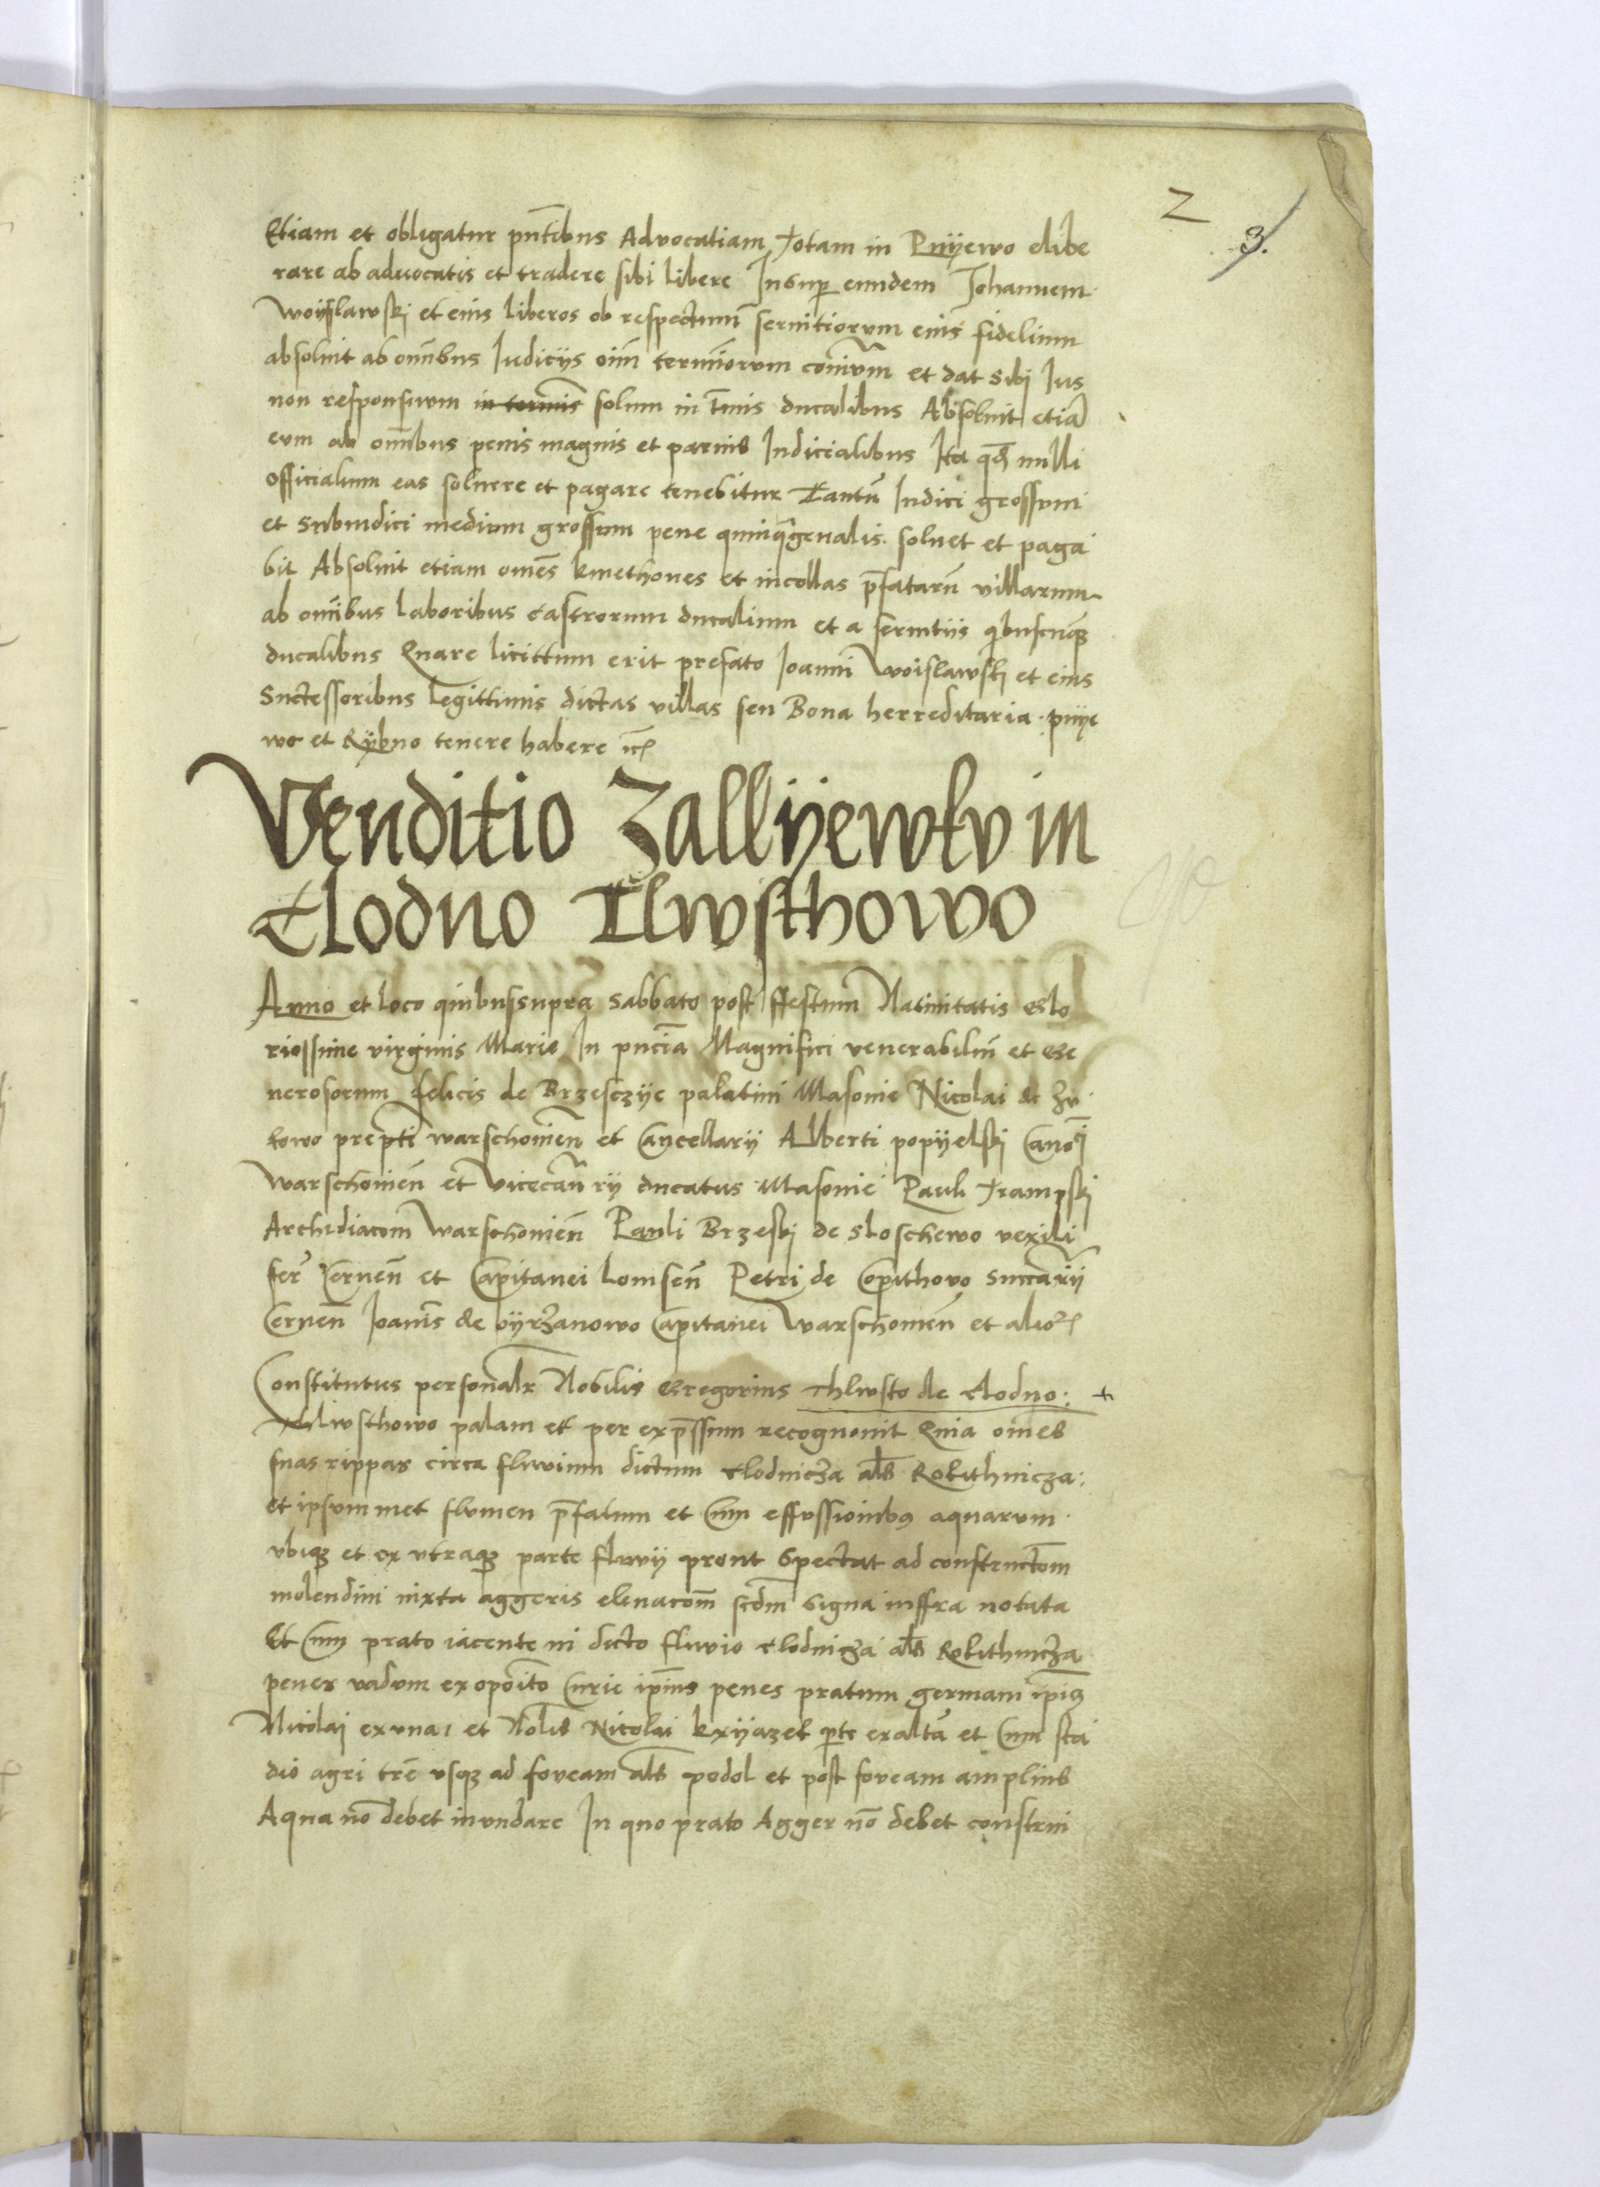 2
3.
Etiam et obligatur pntibus Advocatiam totam in Pnyewo elibe
rare ab advocatis et tradere sibi libere Insup eundem Johannem
Woyslawski et eius liberos ob respectum servitiorum eius fidelium
absoluit ab omnibus Iudicijs oim terminorum comium et dat sibi Ius
non responsivum in termis solum in tmis ducalibus Absoluit etia
eum ab omnibus penis magnis et parvis Iudicialibus Ita qd nulli
officialium eas solvere et pagare tenebitur Tantu Iudici grossum
et Subiudici medium grossum pene quinqgenalis solvet et paga
bit Absoluit etiam omes kmethones et incollas pfataru villarum
ab omibus laboribus castrorum ducalium et a servitiis qibuscunq
ducalibus Quare licittum erit prefato Joanni Woislawski et eius
Suctessoribus legittimis dictas villas seu Bona herreditaria pnye
wo et Rybno tenere habere
Venditio Zallyewkv in
Clodno Tlwsthowo
Anno et loco quibussupra Sabbato post ffestum Nativitatis Glo
riossime virginis Marie In pncia Magnifici venerabiliu et Ge
nerosorum felicis de Brzesczye palatini Masovie Nicolai de Zu
kowo prepti warschovien et Cancellarij Alberti popyelski Canoi
Warschovien et Vicecan rij ducatus Masovie Pauli Trampski
Archidiacom Warschovien Pauli Brzeski de Sloschewo vexilli
feri Cernen et Capitanei Lomsen Petri de Copithovo Succarij
Cernen Joanis de vyrzanowo Capitanei Warschovien et alior
Constitutus personalr Nobilis Gregorius Thlwsto de Clodno: +
Thlwsthowo palam et per expssum recognovit Quia omes
suas rippas circa fluvium dictum Clodnicza als Rokithnicza:
et ipsummet flumen pfatum et cum effussionibus aquarum
ubiq et ex utraq parte fluvij prout Spectat ad constructom
molendini iuxta aggeris elevacom scdm Signa inffra notata
Et cum prato iacente in dicto fluvio Clodnicza als Rokithnicza
penes vadum ex oposito Curie ipius penes pratum germani ipius
Nicolai ex una, et Nobils Nicolai Kxyazek pte ex alta et cum sta
dio agri tre usq ad foveam als podol et post foveam amplius
Aqua no debet inundare In quo prato Agger no debet construi